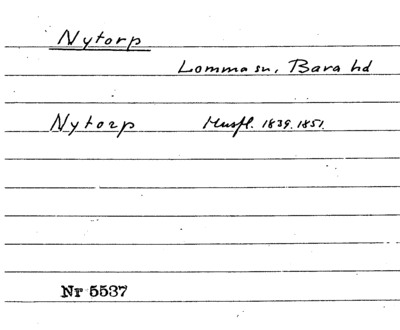 Nytorp
Lomma sn, Bara hd
Nytorp Husfl. 1839. 1851.
Nr 5537